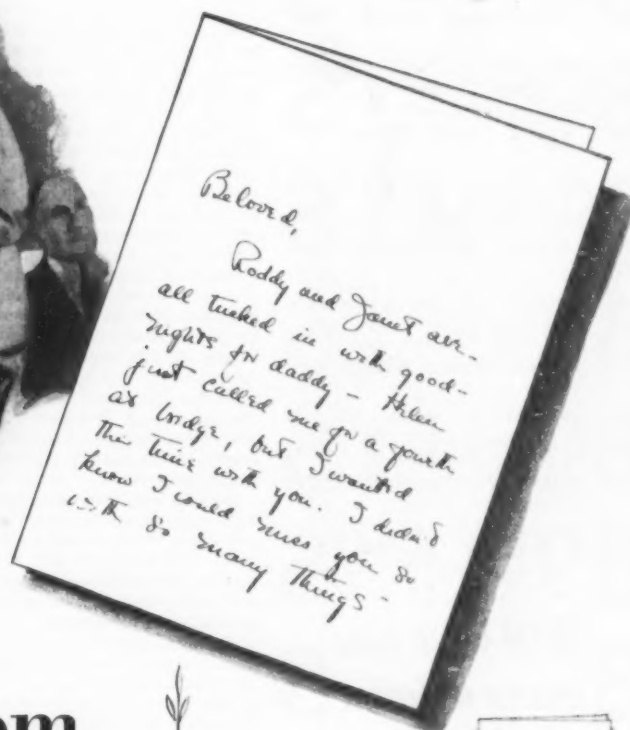 Beloved,
Roddy and Janet are
all tucked in with good-
nights for daddy – Helen
just called me for a fourth
at bridge, but I wanted
this time with you. I didn't
know I would miss you so
with so many things –
om